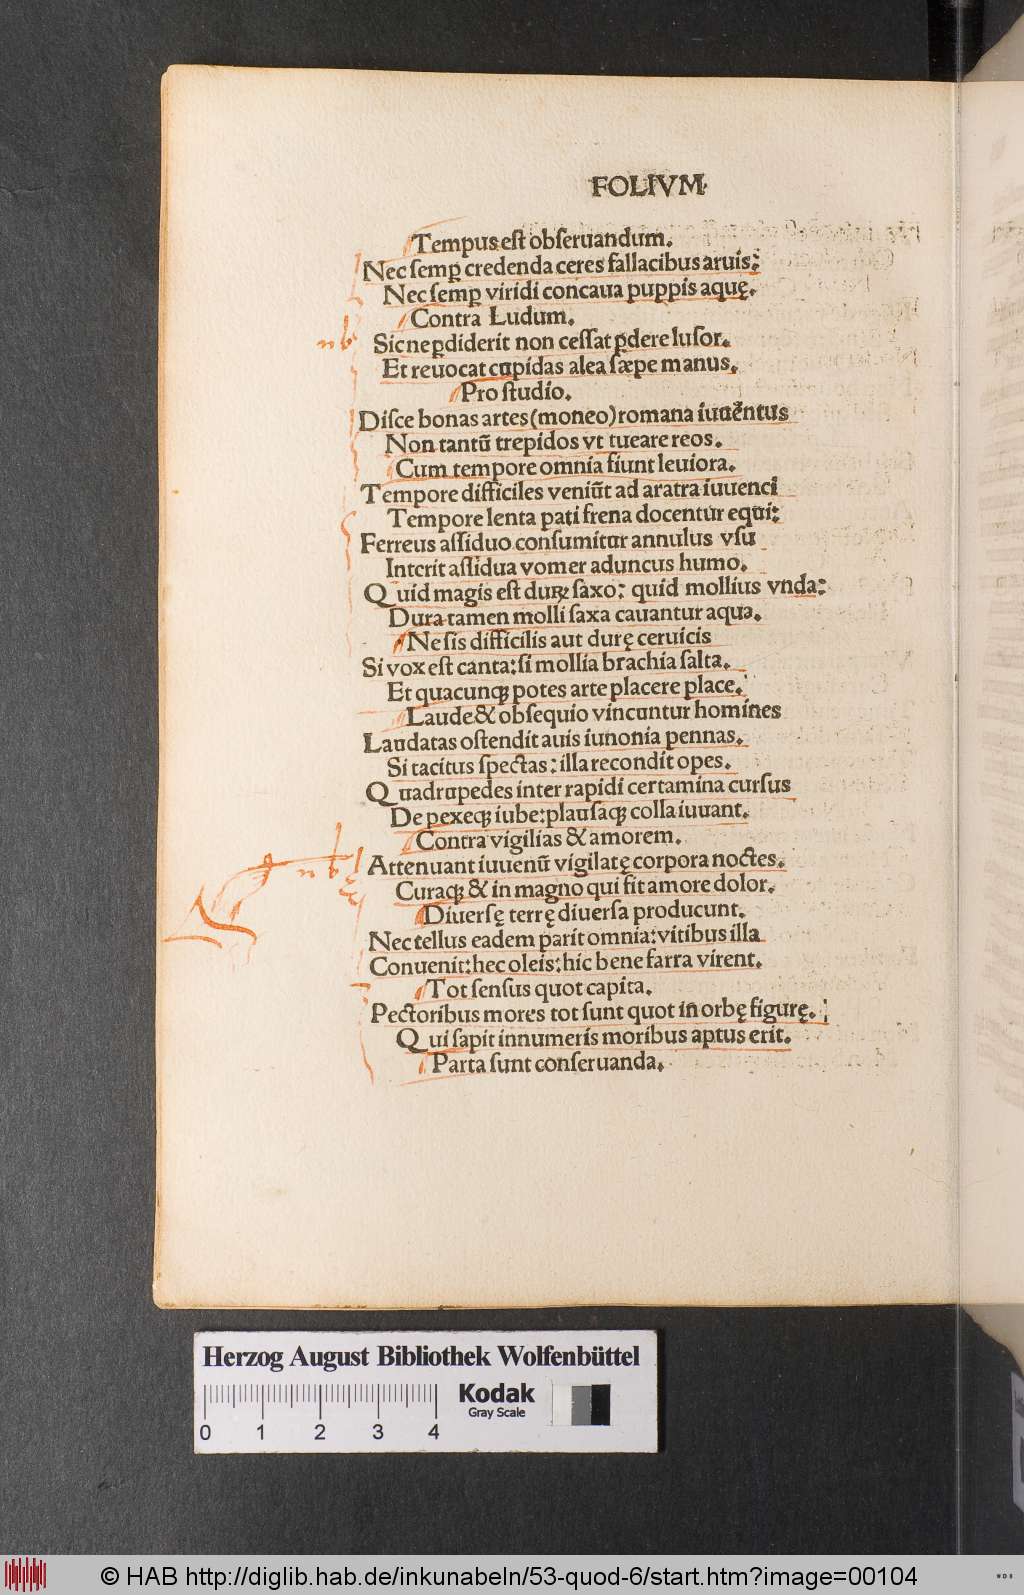 FOLIVM.
Tempus est obſeruandum.
Nec ſemꝑ credenda ceres fallacibus aruis:
Nec ſemꝑ viridi concaua puppis aquę.
Contra Ludum.
nb Sic ne ꝑdiderit non ceſſat ꝑdere luſor.
Et reuocat cupidas alea ſæpe manus.
Pro ſtudio.
Diſce bonas artes (moneo) romana iuuentus
Non tantū trepidos vt tueare reos.
Cum tempore omnia fiunt leuiora.
Tempore difficiles veniūt ad aratra iuuenci
Tempore lenta pati frena docentur equi:
Ferreus aſſiduo conſumitur annulus vſu
Interit aſſidua vomer aduncus humo.
Quid magis eſt duꝝ ſaxo: quid mollius vnda:
Dura tamen molli ſaxa cauantur aqua.
Ne ſis difficilis aut durę ceruicis
Si vox eſt canta: ſi mollia brachia ſalta.
Et quacunqꝫ potes arte placere place.
Laude & obſequio vincuntur homines
Laudatas oſtendit auis iunonia pennas.
Si tacitus ſpectas: illa recondit opes.
Quadrupedes inter rapidi certamina curſus
De pexeqꝫ iube: plauſaqꝫ colla iuuant.
Contra vigilias & amorem.
nb Attenuant iuuenū vigilatę corpora noctes.
Curaqꝫ & in magno qui fit amore dolor.
Diuerſę terrę diuerſa producunt.
Nec tellus eadem parit omnia: vitibus illa
Conuenit: hec oleis: hic bene farra virent.
Tot ſenſus quot capita.
Pectoribus mores tot ſunt quot in orbę figurę.
Qui ſapit innumeris moribus aptus erit.
Parta ſunt conſeruanda.
Herzog August Bibliothek Wolfenbüttel
Kodak
Gray Scale
0 1 2 3 4
© HAB http://diglib.hab.de/inkunabeln/53-quod-6/start.htm?image=00104